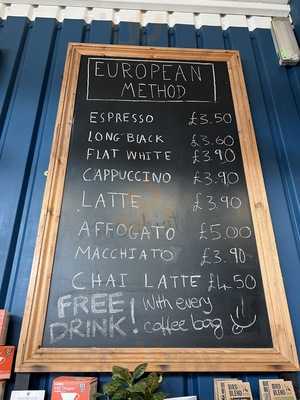 EUROPEAN
METHOD
ESPRESSO £3.50
LONG BLACK £3.60
FLAT WHITE £3.90
CAPPUCCINO £3.90
LATTE £3.90
AFFOGATO £5.00
MACCHIATO £3.90
CHAI LATTE £4.50
FREE DRINK!
With every
coffee bag
BIRD &
BLEND
BIRD &
BLEND